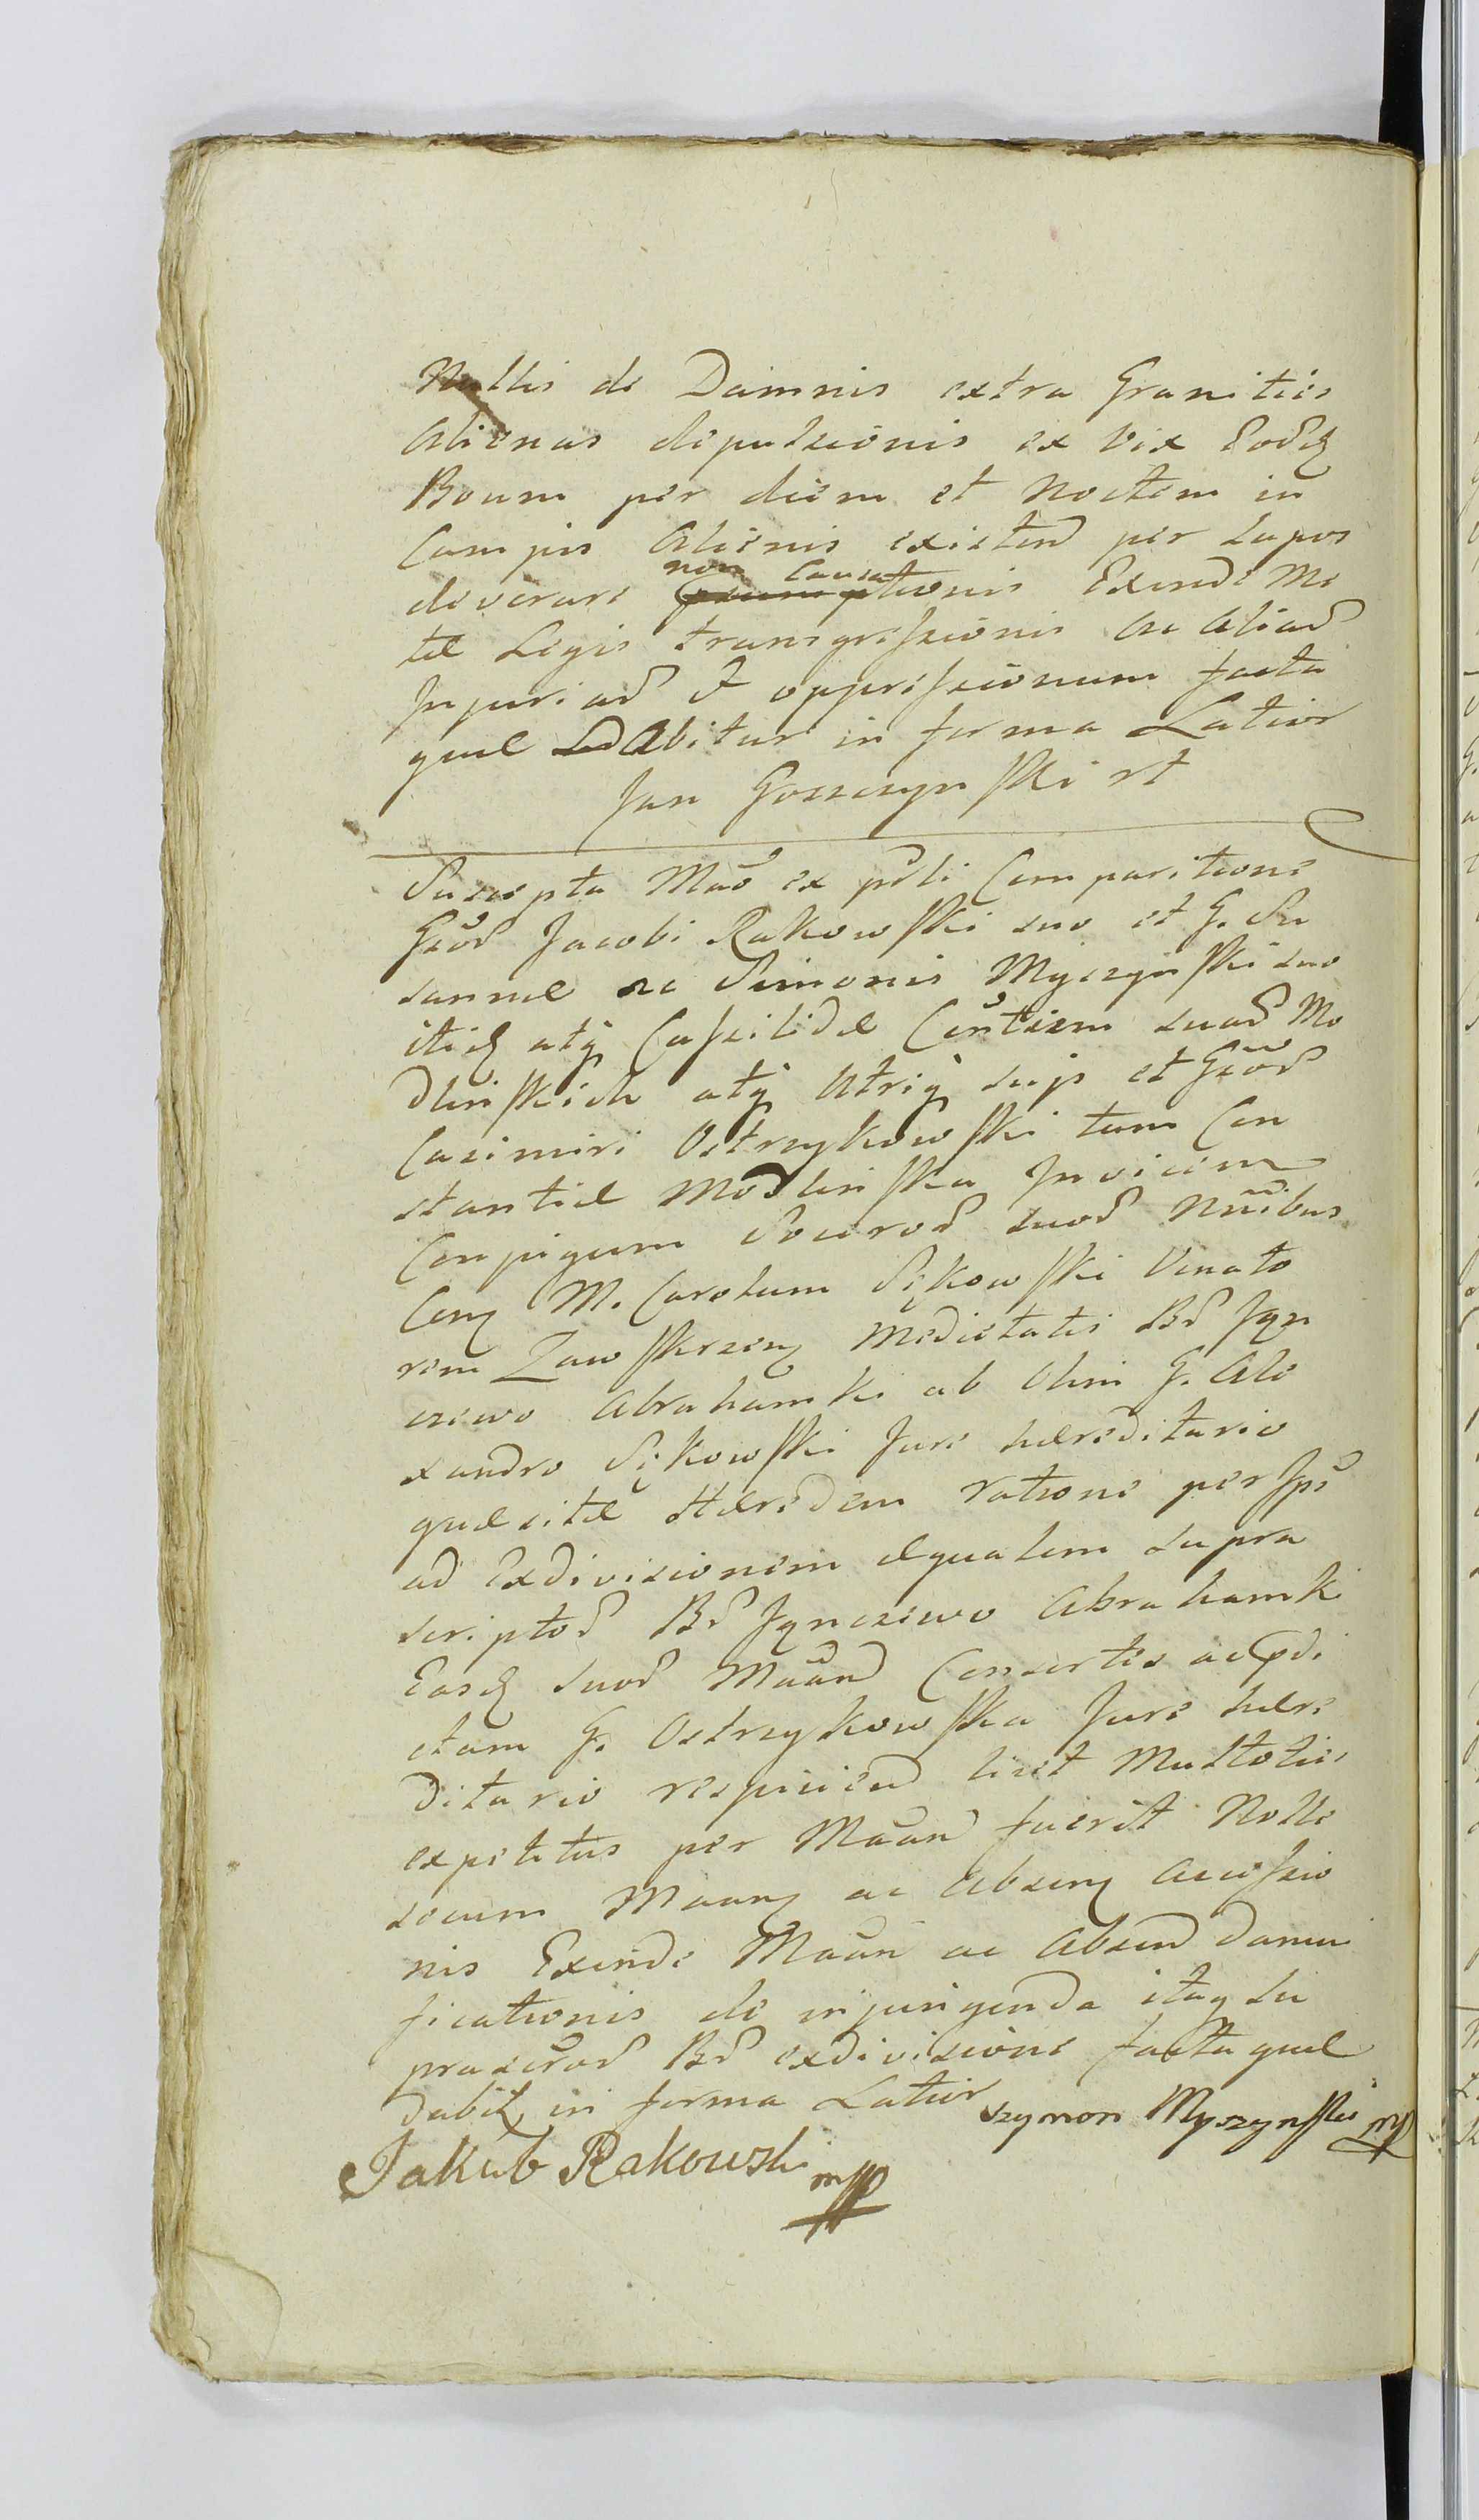 Nullis de Damnis extra Granities
Alienas depulsionis ex vix Eosdq
Boum per diem et Noctem in
Campis Alienis existend per Lupos
devorari non Causationis Exinde Me
tæ Legis transgressionis ac aliar
Injuriar et oppressionum facta
quæ dabitur in forma Latior
Jan Gosczynski rt
Suscepta Mao ex psli Comparitione
Gsor Jacobi Rakowski suo et G. Su
sannæ ac Simonis Myszynski suo
itidq atq Cassildæ Contiem suar Mo
dlinskich atq Atriq sups et Gsor
Casimiri Ostrzykowski tum Con
stantiæ Modlinska Invicem
Conjugum Socror suor Nnibus
Conq M. Carolum Sękowski Venato
rem Zawskrzenq Medietatis Br Jgn
acewo Abrahamki ab Olim G. Ale
xandro Sękowski Jure hæreditario
quæsitæ Hæredem ratione per Jps
ad Exdivisionem æqualem supra
scriptor Br Jgnacewo Abrahamki
Easdq suor Maand Consortes ac pdi
ctam G. Ostrzykowska Jure hære
ditario respiciend licet Multoties
expetitus per Maand fuerit Nolle
secum Maanq ac Absenq accessio
nis Exinde Maan ac Absend damni
ficationis de injungenda itaq su
prascror Br exdivisione facta quæ
dabit in forma Latior Szymon Myszynski mp
Jakub Rakowski mpp